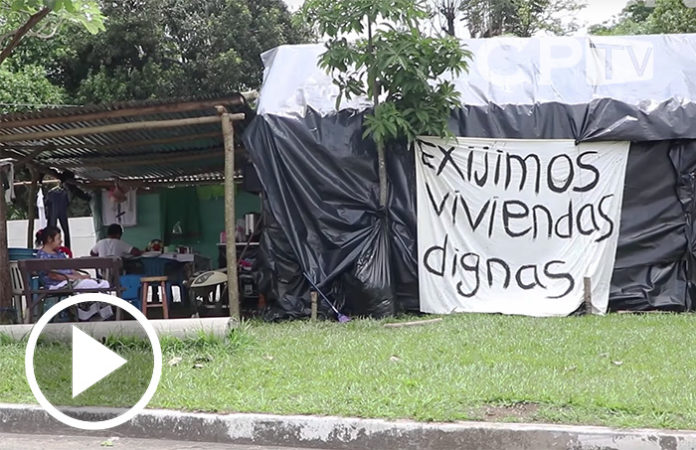 CPITV
EXIJIMOS
viviendas
dignas